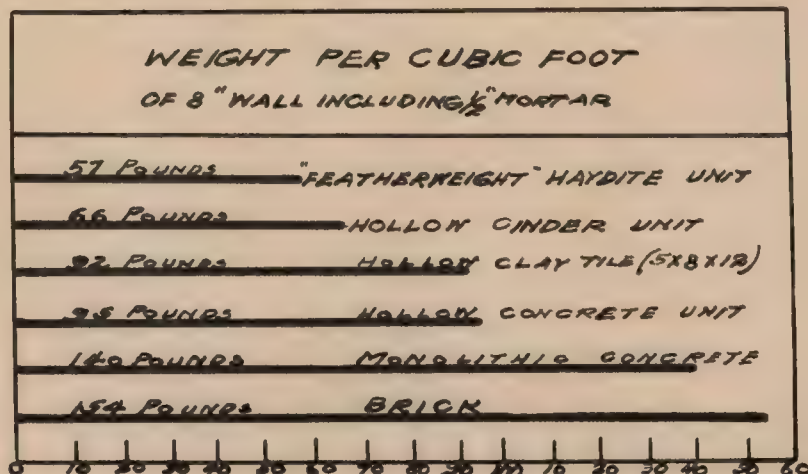 WEIGHT PER CUBIC FOOT
OF 8" WALL INCLUDING ½" MORTAR
57 POUNDS "FEATHERWEIGHT" HAYDITE UNIT
66 POUNDS HOLLOW CINDER UNIT
92 POUNDS HOLLOW CLAY TILE (5X8X12)
95 POUNDS HOLLOW CONCRETE UNIT
140 POUNDS MONOLITHIC CONCRETE
154 POUNDS BRICK
0 10 20 30 40 50 60 70 80 90 100 10 20 30 40 50 60